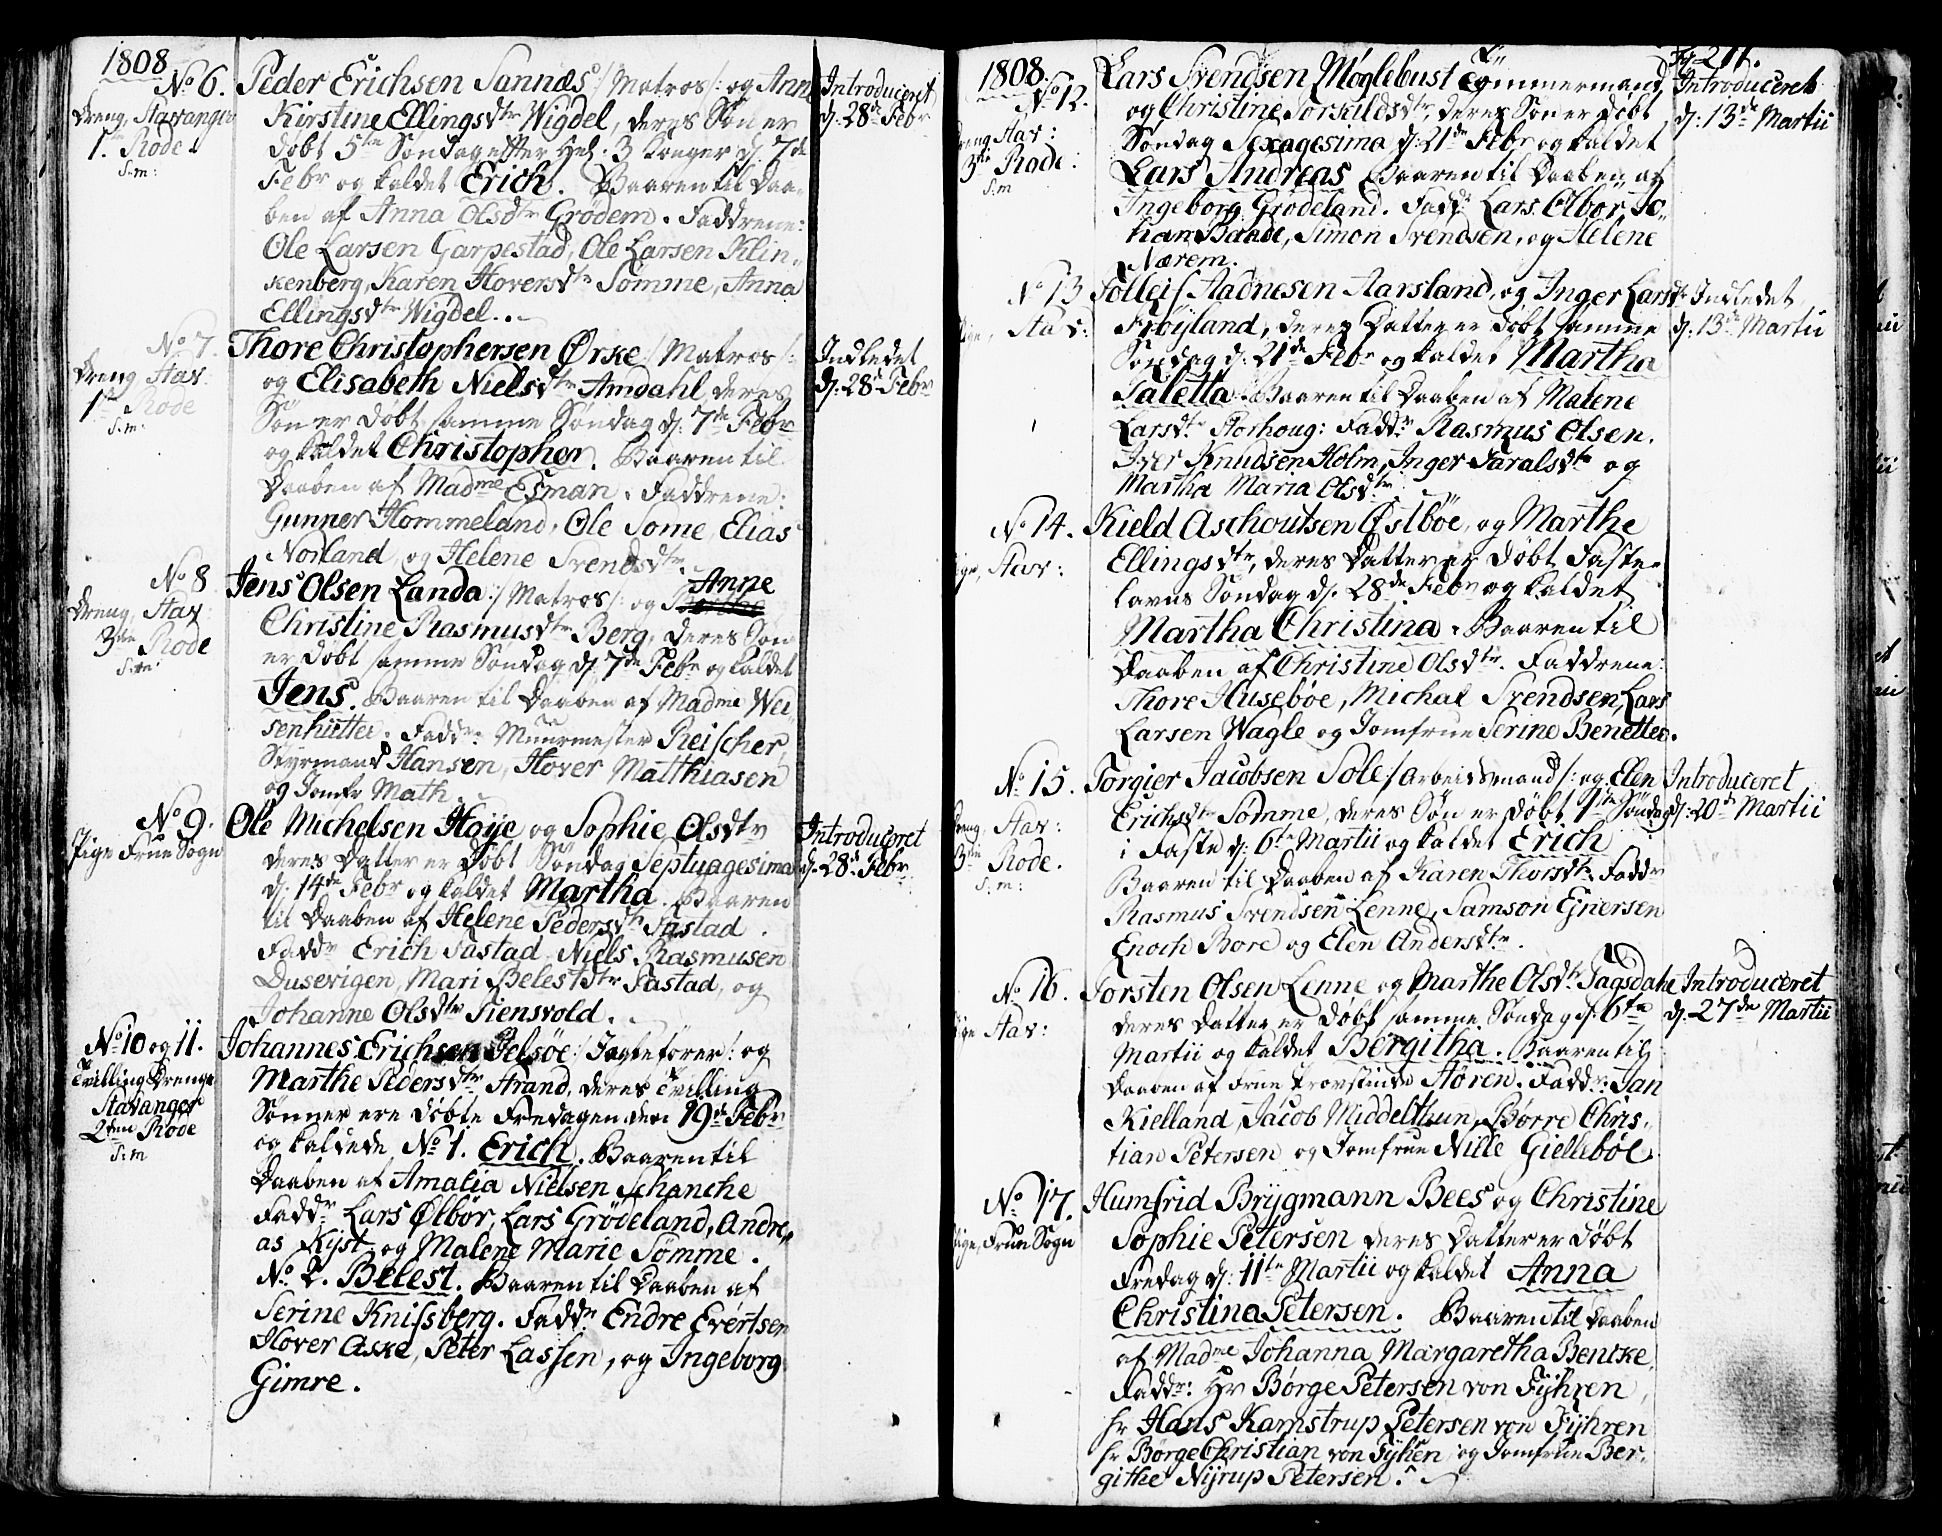 1808
No 6.
Dreng, Stavanger
1te Rode.
S:m:
Peder Erichsen Sannæs /: Matros :/ og Anne
Kirstine Ellingsdtr Wigdel, deres Søn er
døbt 5te Søndag efter Hel: 3 Konger d: 7de
Febr og kaldet Erich. Baaren til Daa-
ben af Anna Olsdtr Grødem. Faddrene:
Ole Larsen Garpestad, Ole Larsen Klin-
kenberg, Karen Hoversdtr Sømme, Anna
Ellingsdtr Wigdel.
Introduceret
d: 28de Febr
No 7.
Dreng Stav:
1te Rode
S:m:
Thore Christophersen Ørke /: Matros :/
og Elisabeth Nielsdtr Amdahl, deres
Søn er døbt samme Søndag d: 7de Febr
og kaldet Christopher. Baaren til
Daaben af Madme Esman. Faddrene:
Gunner Hommeland, Ole Some, Elias
Norland og Helene Svendsdtr.
Indledet
d: 28de Febr
No 8
Dreng, Stav:
3die Rode
S:m:
Jens Olsen Landa /: Matros :/ og Anne
Christine Rasmusdtr Berg, deres Søn
er døbt samme Søndag d: 7de Febr og kaldet
Jens. Baaren til Daaben af Madme Wei-
senhütter. Faddr: Muurmester Reischer,
Styrmand Hansen, Hover Matthiasen
og Jomfr Math.
No 9.
Pige Frue Sogn
Ole Michelsen Høÿe og Sophie Olsdtr
deres Datter er døbt Søndag Septuagesima
d: 14de Febr og kaldet Martha. Baaren
til Daaben af Helene Pedersdtr Fastad.
Faddr Erich Fastad, Niels Rasmusen
Dusevigen, Mari Belestdtr Fastad, og
Johanne Olsdtr Siensvold.
Introduceret
d: 28de Febr
No 10 og 11.
Tvilling Drenge
Stavanger
2den Rode
S:m
Johannes Erichsen Jelsøe /: Jagtefører :/ og
Marthe Pedersdtr Strand, deres Tvilling
Sønner ere døbte Fredagen den 19de Febr
og kaldede No 1. Erich. Baaren til
Daaben af Amalia Nielsen Schanche
Faddr Lars Ølbør, Lars Grødeland, Andre-
as Kyst og Malene Marie Sømme.
No 2. Belest. Baaren til Daaben af
Serine Knissberg. Faddr: Endre Evertsen
Hover Aske, Peter Lassen, og Ingeborg
Gimre.
1808.
No 12.
Dreng Stav:
3die Rode:
S:m
Lars Svendsen Møglebust Tømmermand
og Christine Torkildsdtr, deres Søn er døbt
Søndag Sexagesima d: 21de Febr og kaldet
Lars Andreas. Baaren til Daaben af
Ingeborg Grødeland. Faddr: Lars Ølbør, Jo-
han Baade, Simon Svendsen, og Helene
Nærem.
Pg. 211.
Introduceret
d: 13de Martii
No 13
Pige, Stav:
Tolleif Aadnesen Aarsland, og Inger Larsdtr
Frøÿland, deres Datter er døbt samme
Søndag d: 21de Febr og kaldet Martha
Taletta. Baaren til Daaben af Malene
Larsdtr Storhoug: Faddr: Rasmus Olsen.
Iver Knudsen Holm, Inger Taralsdtr og
Martha Maria Olsdtr.
Indledet
d: 13de Martii
No 14.
Pige, Stav:
Kield Aschoutsen Østbøe, og Marthe
Ellingsdtr, deres Datter er døbt Faste-
lavns Søndag d: 28de Febr og kaldet
Martha Christina. Baaren til
Daaben af Christine Olsdtr. Faddrene:
Thore Husebøe, Michal Svendsen, Lars
Larsen Wagle og Jomfrue Serine Benetter.
No 15.
Dreng, Stav:
3die Rode.
S:m:
Torgier Jacobsen Sole /: Arbeidsmand :/ og Elen
Erichsdtr Sømme, deres Søn er døbt 1te Søndag
i Faste d: 6te Martii og kaldet Erich
Baaren til Daaben af Karen Thorsdtr. Faddr
Rasmus Svendsen Lenne, Samson Ejnersen
Enoch Bore og Elen Andersdtr.
Introduceret
d: 20de Martii
No 16.
Pige Stav:
Torsten Olsen Lenne og Marthe Olsdtr Tagsdahl
deres Datter er døbt samme Søndag d: 6te
Martii og kaldet Bergitha. Baaren til
Daaben af Frue Provstinde Støren. Faddr: Jan
Kielland, Jacob Middelthun, Børre Chris-
tian Petersen og Jomfrue Nille Giellebøl.
Introduceret
d: 27de Martii
No 17.
Pige, Frue Sogn
Humfrid Brÿgmann Bees og Christine
Sophie Petersen deres Datter er døbt
Fredag d: 11te Martii og kaldet Anna
Christina Petersen. Baaren til Daaben
af Madme Johanna Margaretha Bencke.
Faddr: Hr Børge Petersen von Fÿhren,
Hr Hans Kamstrup Petersen von Fÿhren
Hr Børge Christian von Fÿhen, og Jomfrue Ber-
githe Nÿrup Petersen.